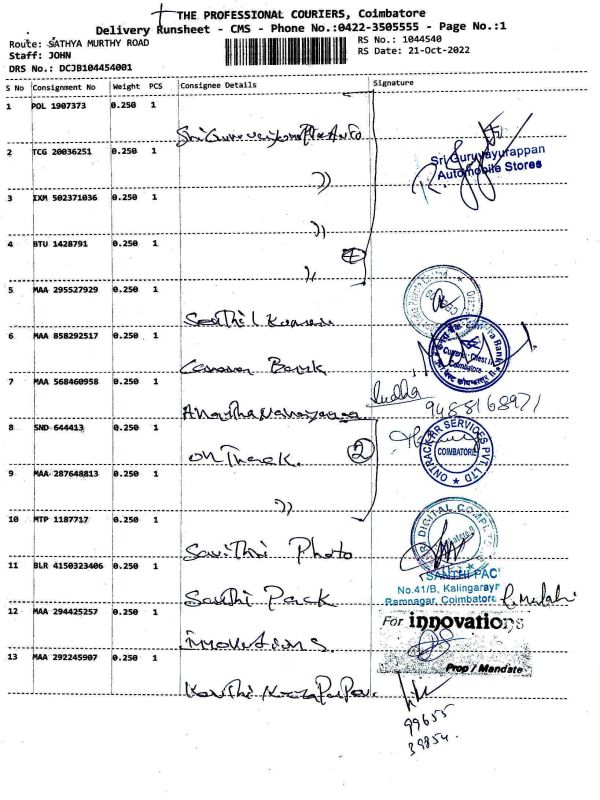 THE PROFESSIONAL COURIERS, Coimbatore
Delivery Runsheet - CMS - Phone No.:0422-3505555 - Page No.:1
Route: SATHYA MURTHY ROAD
RS No.: 1044540
Staff: JOHN
RS Date: 21-Oct-2022
DRS No.: DCJB104454001
S No Consignment No Weight PCS Consignee Details Signature
1 POL 1907373 0.250 1
2 TCG 20036251 0.250 1 ))
Sri Guruvayurappan
Automobile Stores
3 IXM 502371036 0.250 1 ))
4 BTU 1428791 0.250 1 )) 4
5 MAA 295527929 0.250 1 Senthil Kumaran
6 MAA 858292517 0.250 1 Canara Bank
Canara Bank
Coimbatore
7 MAA 568460958 0.250 1
Sudha
9488168971
8 SND 644413 0.250 1 On Track. 2
ONTRACK AIR SERVICES PVT. LTD
COIMBATORE
9 MAA 287648813 0.250 1 ))
10 MTP 1187717 0.250 1 Savithri Photo
DIGITAL
11 BLR 4150323406 0.250 1 Santhi Pack
SANTHI PAC
No.41/B, Kalingarayr
Ramnagar, Coimbatore
12 MAA 294425257 0.250 1 innovations
For innovations
Prop / Mandate
13 MAA 292245907 0.250 1
99655
39854.